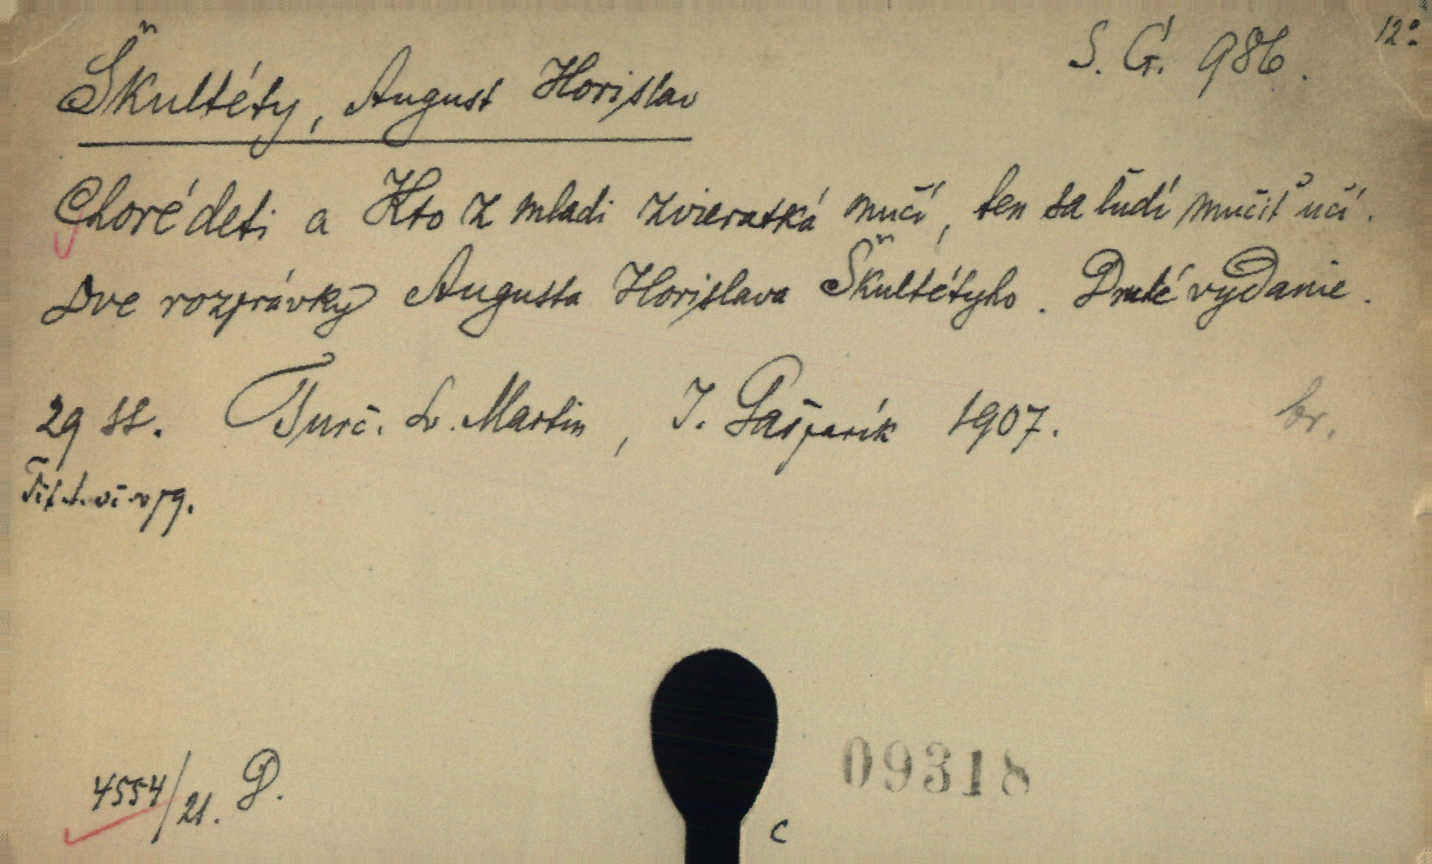 12°
S. G. 986.
Škultéty, August Horislav
Choré deti a Kto z mladi zvieratká mučí, ten sa ľudí mučiť učí.
Dve rozprávky Augusta Horislava Škultétyho. Druhé vydanie.
29 ss. Turč. Sv. Martin, J. Gašparík 1907. br.
4554/21. D.
09318
C